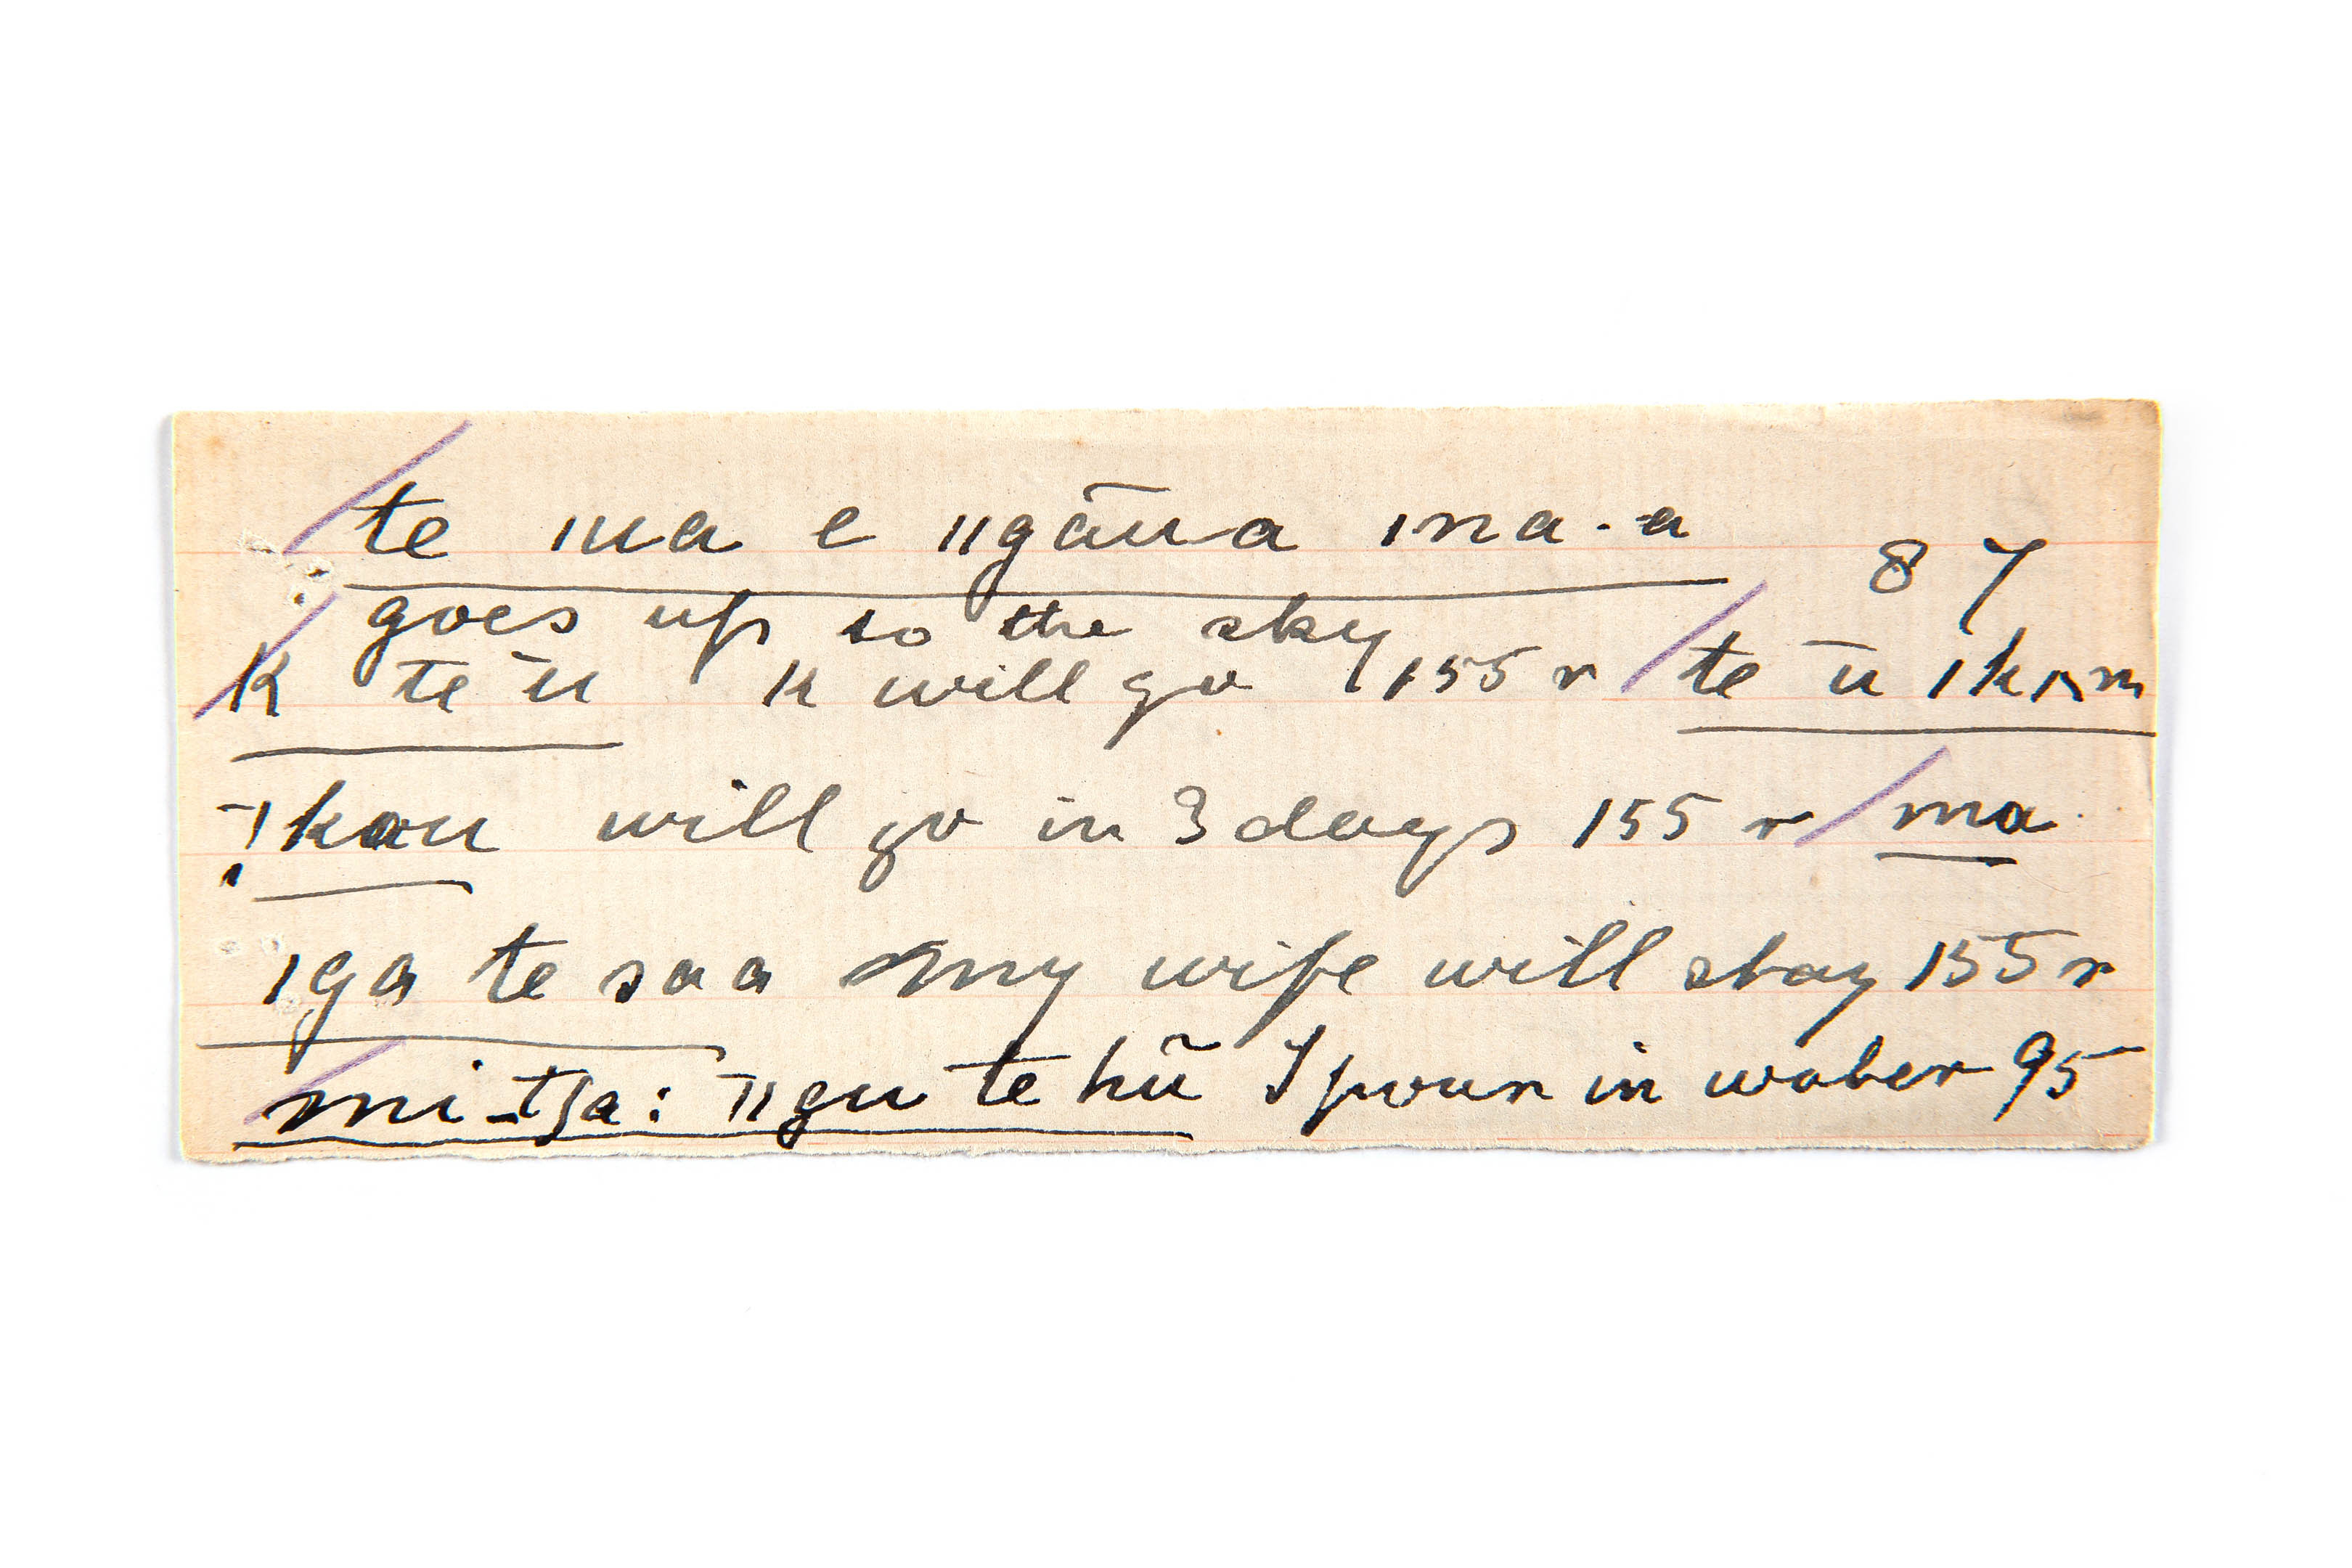 te ǀua e ǁgāua ǀna-a
goes up to the sky 87
K te ū K will go 155 r te ū ǀkƨm
ǃkau will go in 3 days 155 r ma
ǀga te saa my wife will stay 155 r
mi-tʃa: ǁgu te hū I pour in water 95